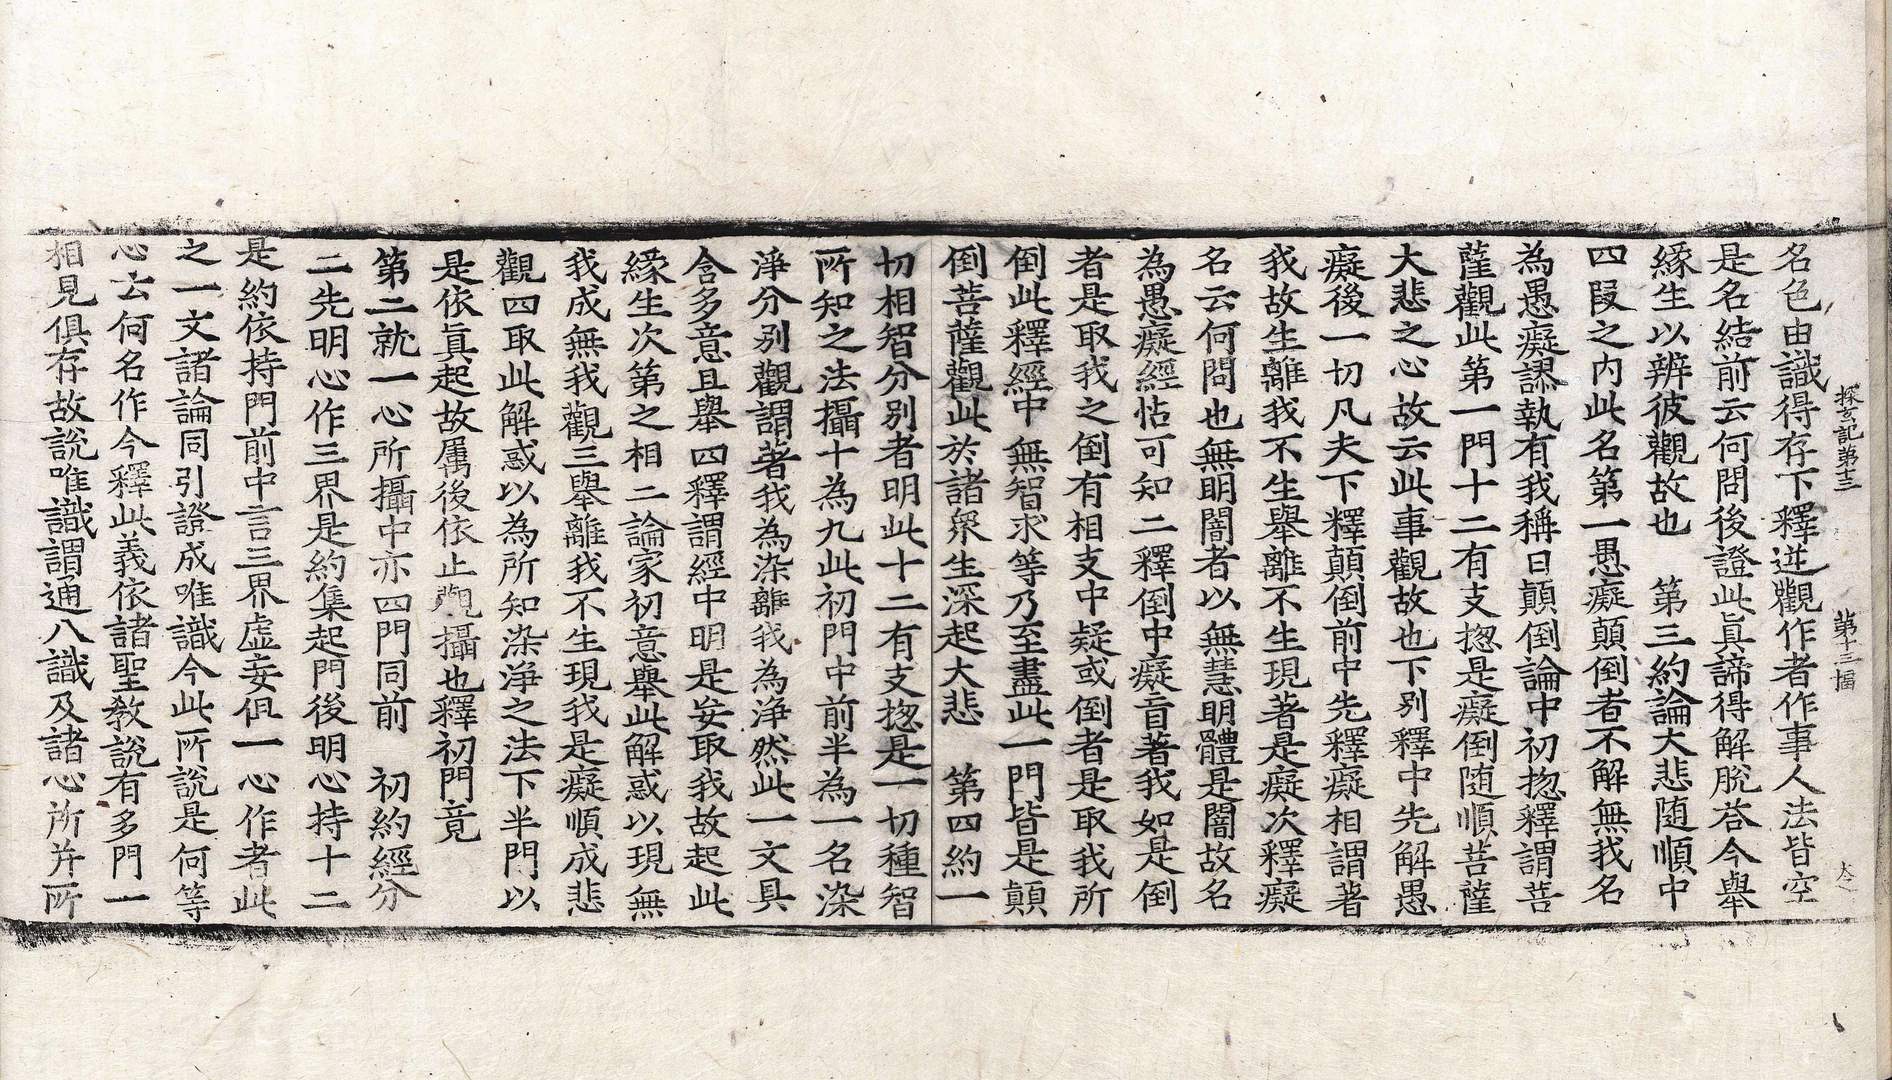 探玄記第十三　第十三幅
名色由識得存下釋逆觀作者作事人法皆空
是名結前云何問後證此真諦得解脫荅今舉
緣生以辨彼觀故也　第三約論大悲随順中
四段之内此名第一愚癡顛倒者不解無我名
為愚癡謬執有我稱曰顛倒論中初揔釋謂菩
薩觀此第一門十二有支揔是癡倒随順菩薩
大悲之心故云此事觀故也下別釋中先解愚
癡後一切凡夫下釋顛倒前中先釋癡相謂著
我故生離我不生舉離不生現著是癡次釋癡
名云何問也無明闇者以無慧明體是闇故名
為愚癡經怙可知二釋倒中癡盲著我如是倒
者是取我之倒有相支中疑或倒者是取我所
倒此釋經中無智求等乃至盡此一門皆是顛
倒菩薩觀此於諸衆生深起大悲　第四約一
切相智分別者明此十二有支揔是一切種智
所知之法攝十為九此初門中前半為一名染
淨分別觀謂著我為染離我為淨然此一文具
含多意且舉四釋謂經中明是妄取我故起此
緣生次第之相二論家初意舉此解惑以現無
我成無我觀三舉離我不生現我是癡順成悲
觀四取此解惑以為所知染淨之法下半門以
是依真起故属後依止觀攝也釋初門竟
第二就一心所攝中亦四門同前　初約經分
二先明心作三界是約集起門後明心持十二
是約依持門前中言三界虚妄但一心作者此
之一文諸論同引證成唯識今此所說是何等
心云何名作今釋此義依諸聖教說有多門一
相見俱存故說唯識謂通八識及諸心所并所